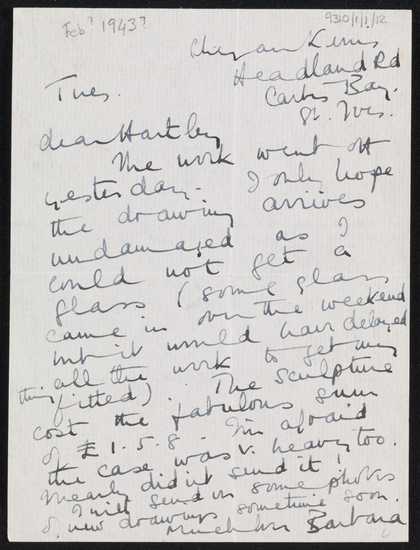 Feb? 1943?
9310/1/1/12
Chy an Kerris
Headland Rd
Carbis Bay.
St. Ives.
Tues.
dear Hartley
The work went off
yesterday. I only hope
the drawing arrives
undamaged as I
could not get a
glass (some glass
came in over the weekend
but it would have delayed
all the work to get my
thing fitted). The sculpture
cost the fabulous sum
of £1.5.8. I'm afraid
the case was v. heavy too.
I nearly didn't send it!
I will send on some photos
of new drawings sometime soon.
much love Barbara